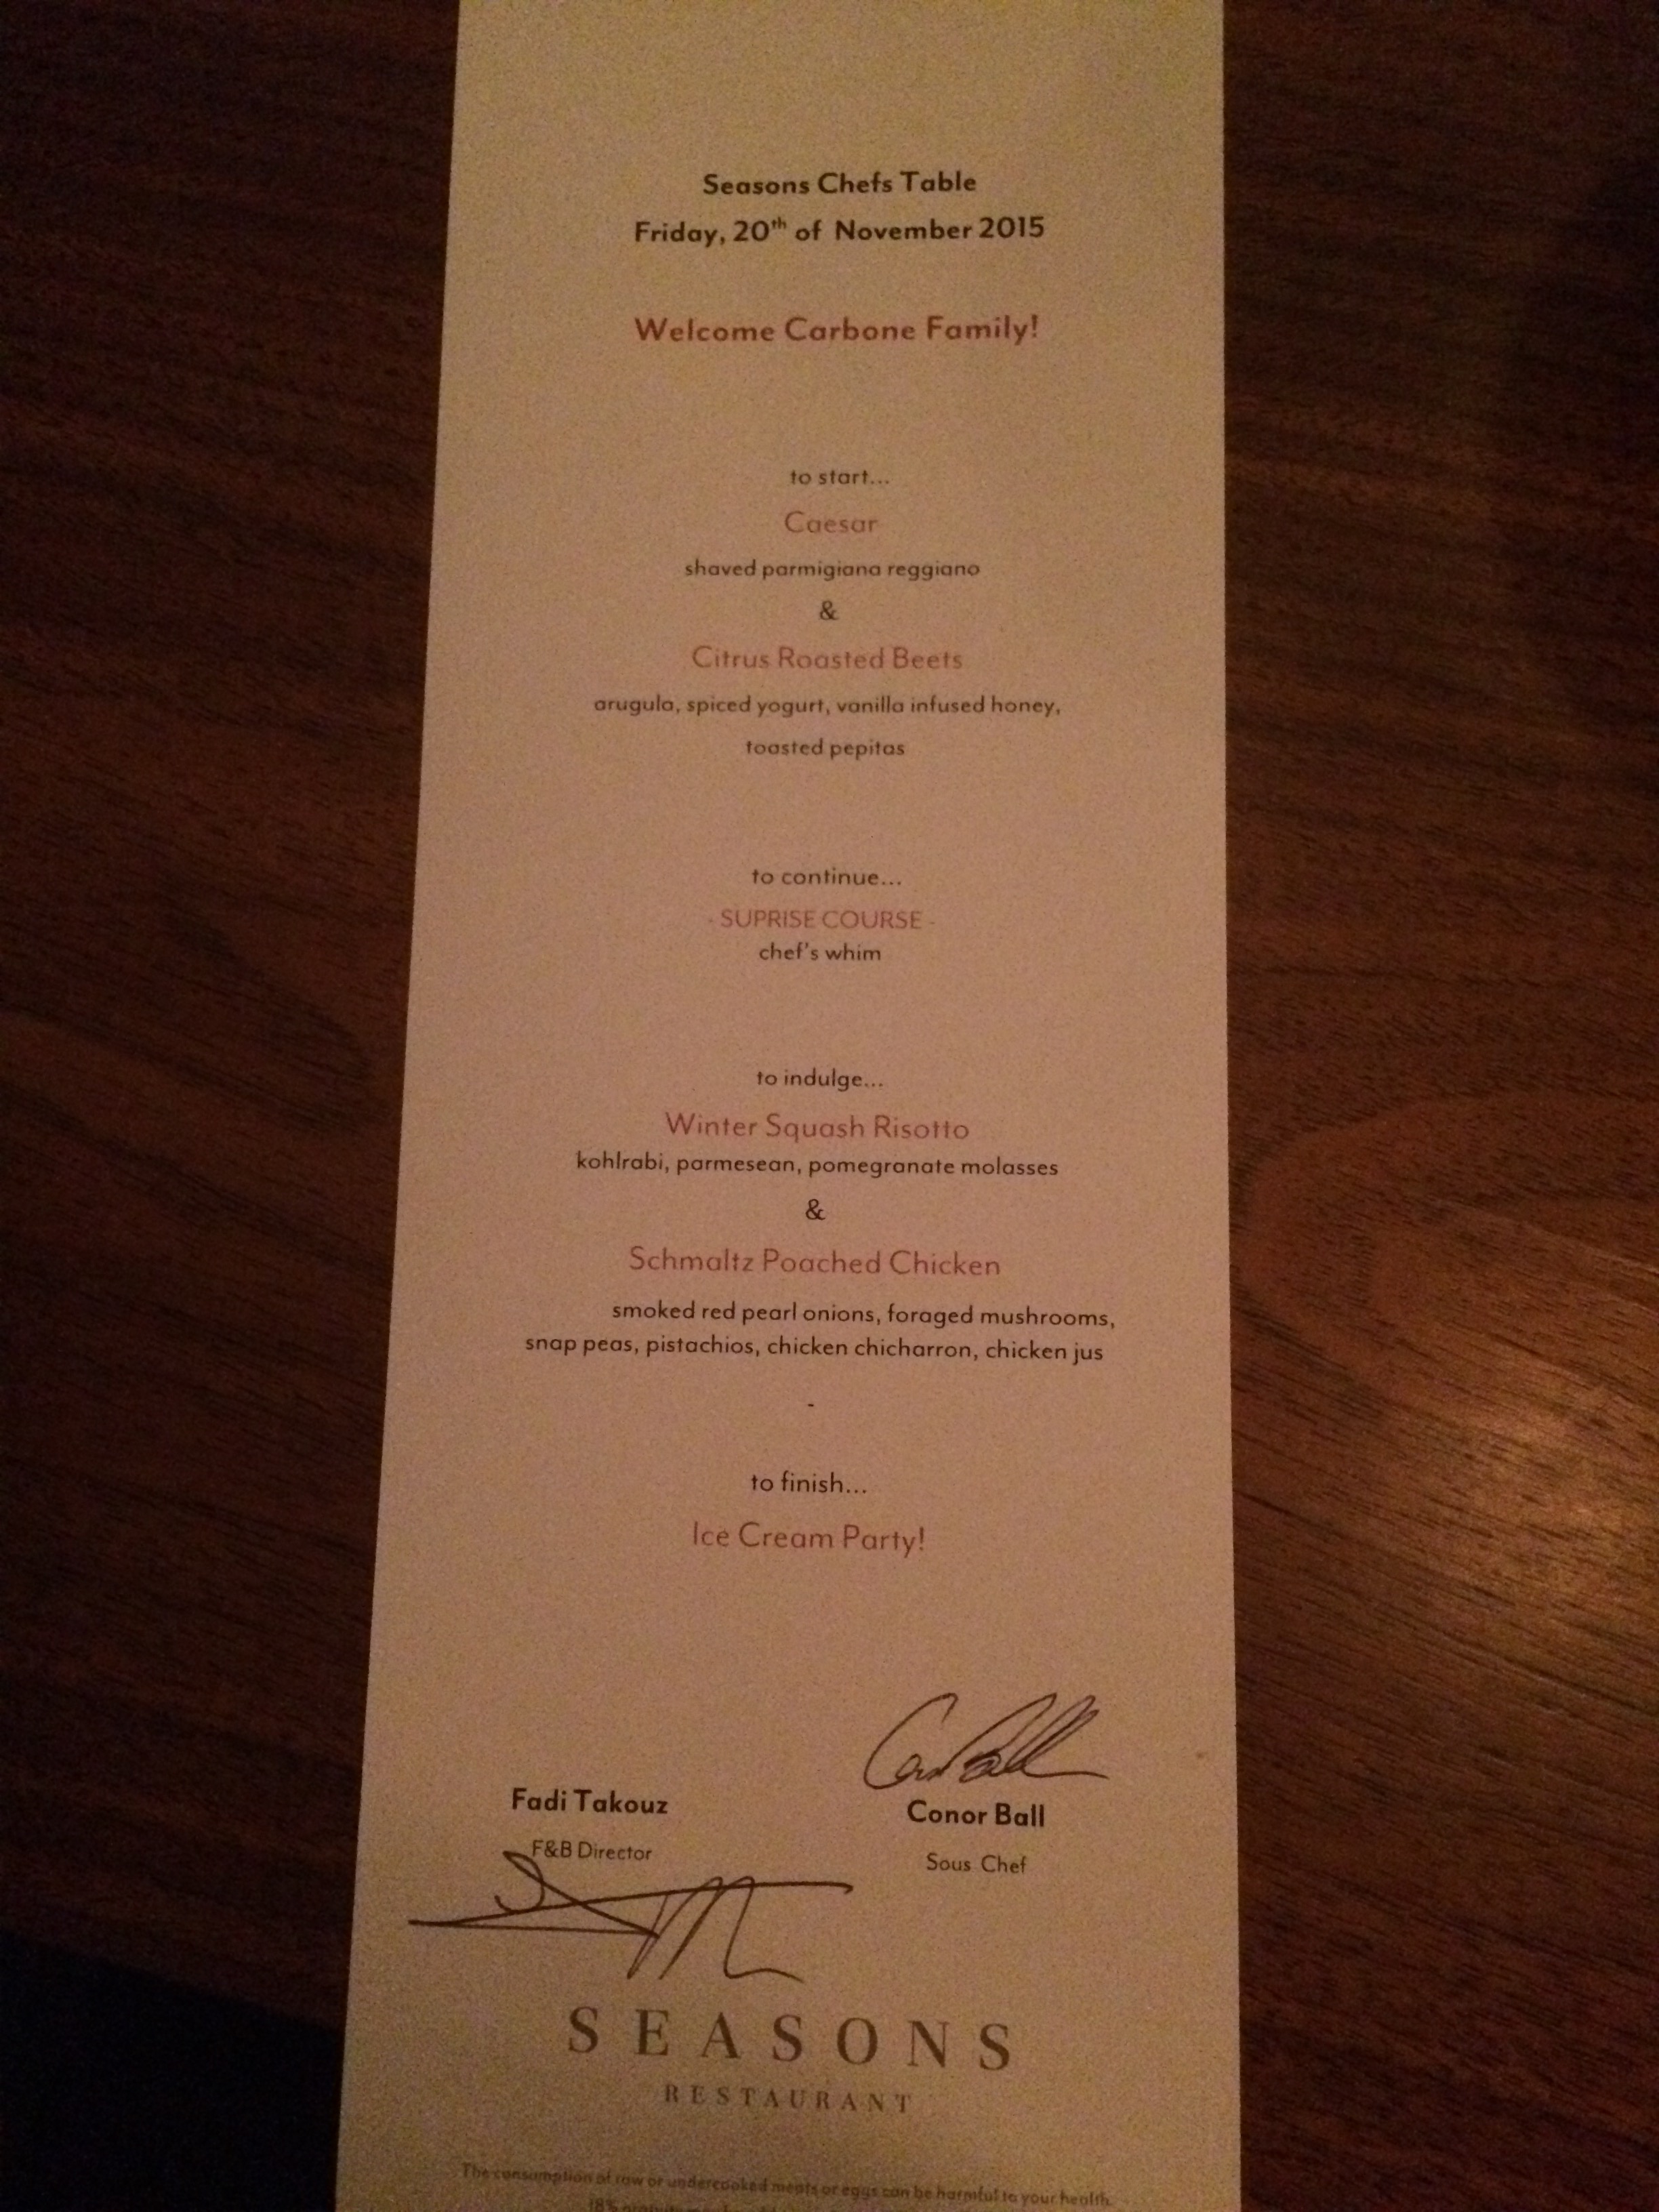 Seasons Chefs Table
Friday, 20th of November 2015
Welcome Carbone Family!
to start...
Caesar
shaved parmigiana reggiano
&
Citrus Roasted Beets
arugula, spiced yogurt, vanilla infused honey,
toasted pepitas
to continue...
- SUPRISE COURSE -
chef's whim
to indulge...
Winter Squash Risotto
kohlrabi, parmesean, pomegranate molasses
&
Schmaltz Poached Chicken
smoked red pearl onions, foraged mushrooms,
snap peas, pistachios, chicken chicharron, chicken jus
-
to finish...
Ice Cream Party!
Fadi Takouz
F&B Director
Conor Ball
Sous Chef
SEASONS
RESTAURANT
The consumption of raw or undercooked meats or eggs can be harmful to your health.
18%